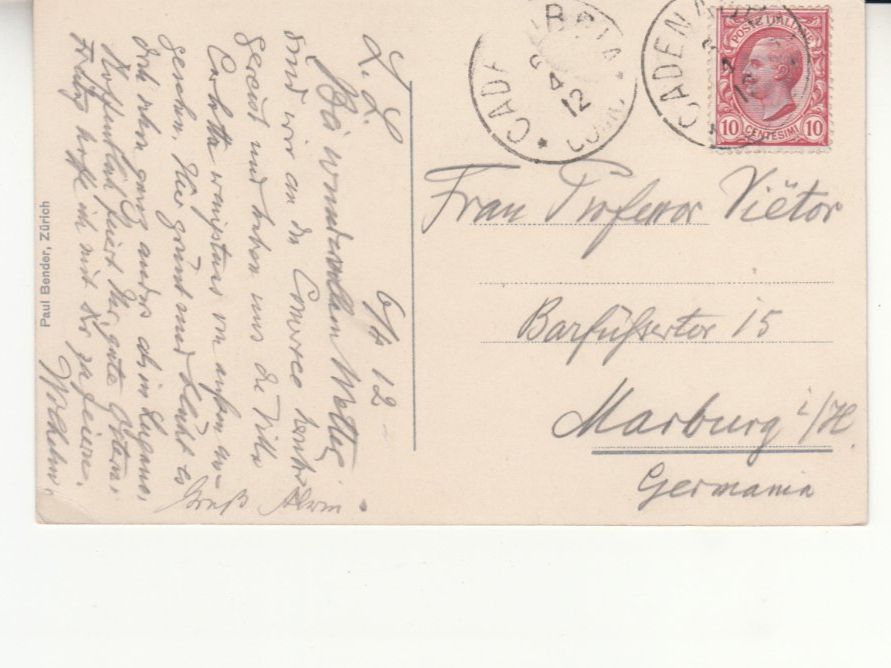 6/4 12
L. L.
Bei wundervollem Wetter
sind wir an den Comersee
gereist und haben uns die Villa
Carlotta wenigstens von außen an-
gesehn. Hier grünt und blüht es
doch schon ganz anders als in Lugano.
Hoffentlich feiert Ihr gute Ostern.
hoffe ich mit Dir zu feiern.
Wilhelm.
Gruß Alwin.
Paul Bender, Zürich
CADENABBIA
6 4 12
COMO
CADENABBIA
POSTE ITALIANE
10 CENTESIMI 10
Frau Professor Viëtor
Barfüssertor 15
Marburg i/H.
Germania